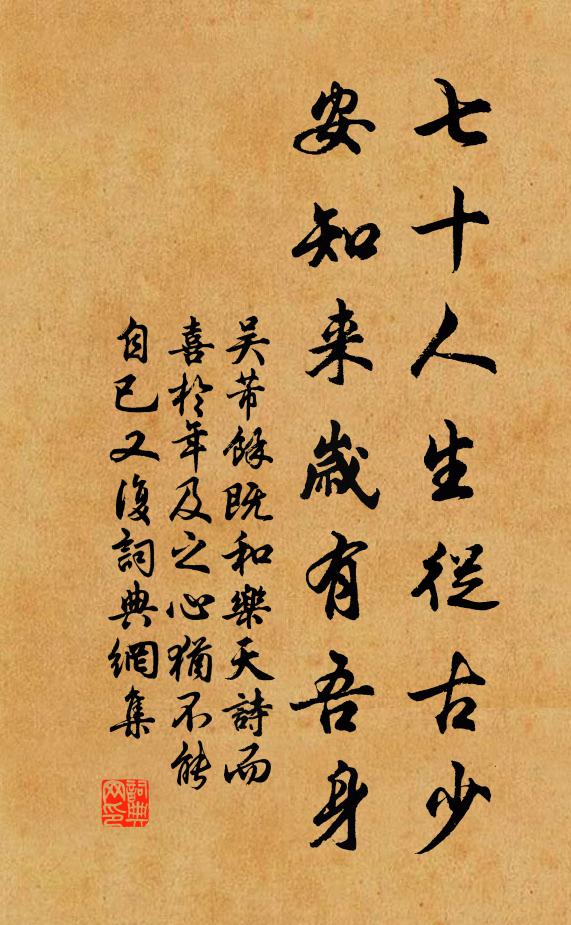 七十人生從古少
安知来歲有吾身
吴芾餘既和樂天詩而
喜於年及之心猶不能
自已又復詞典網集
詞典
网印